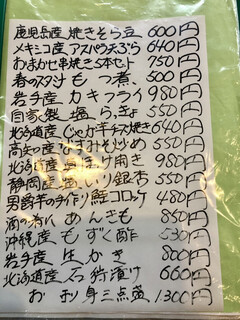 鹿児島産焼きそら豆 600円
メキシコ産アスパラ天ぷら 640円
おまかせ串焼き5本セット 750円
春のスタミナもつ煮、 500円
岩手産カキフライ 980円
自家製塩らっきょ 550円
北海道産じゃが芋チーズ焼き 640円
高知の 550円
北海道産 ほっけ開き 980円
静岡産 煎り銀杏 550円
男爵芋の手作り鮭コロッケ 480円
めんきも 850円
沖縄産もずく酢 530円
岩手産生かき 800円
北海道産石狩漬け 660円
お刺身三点盛 1300円